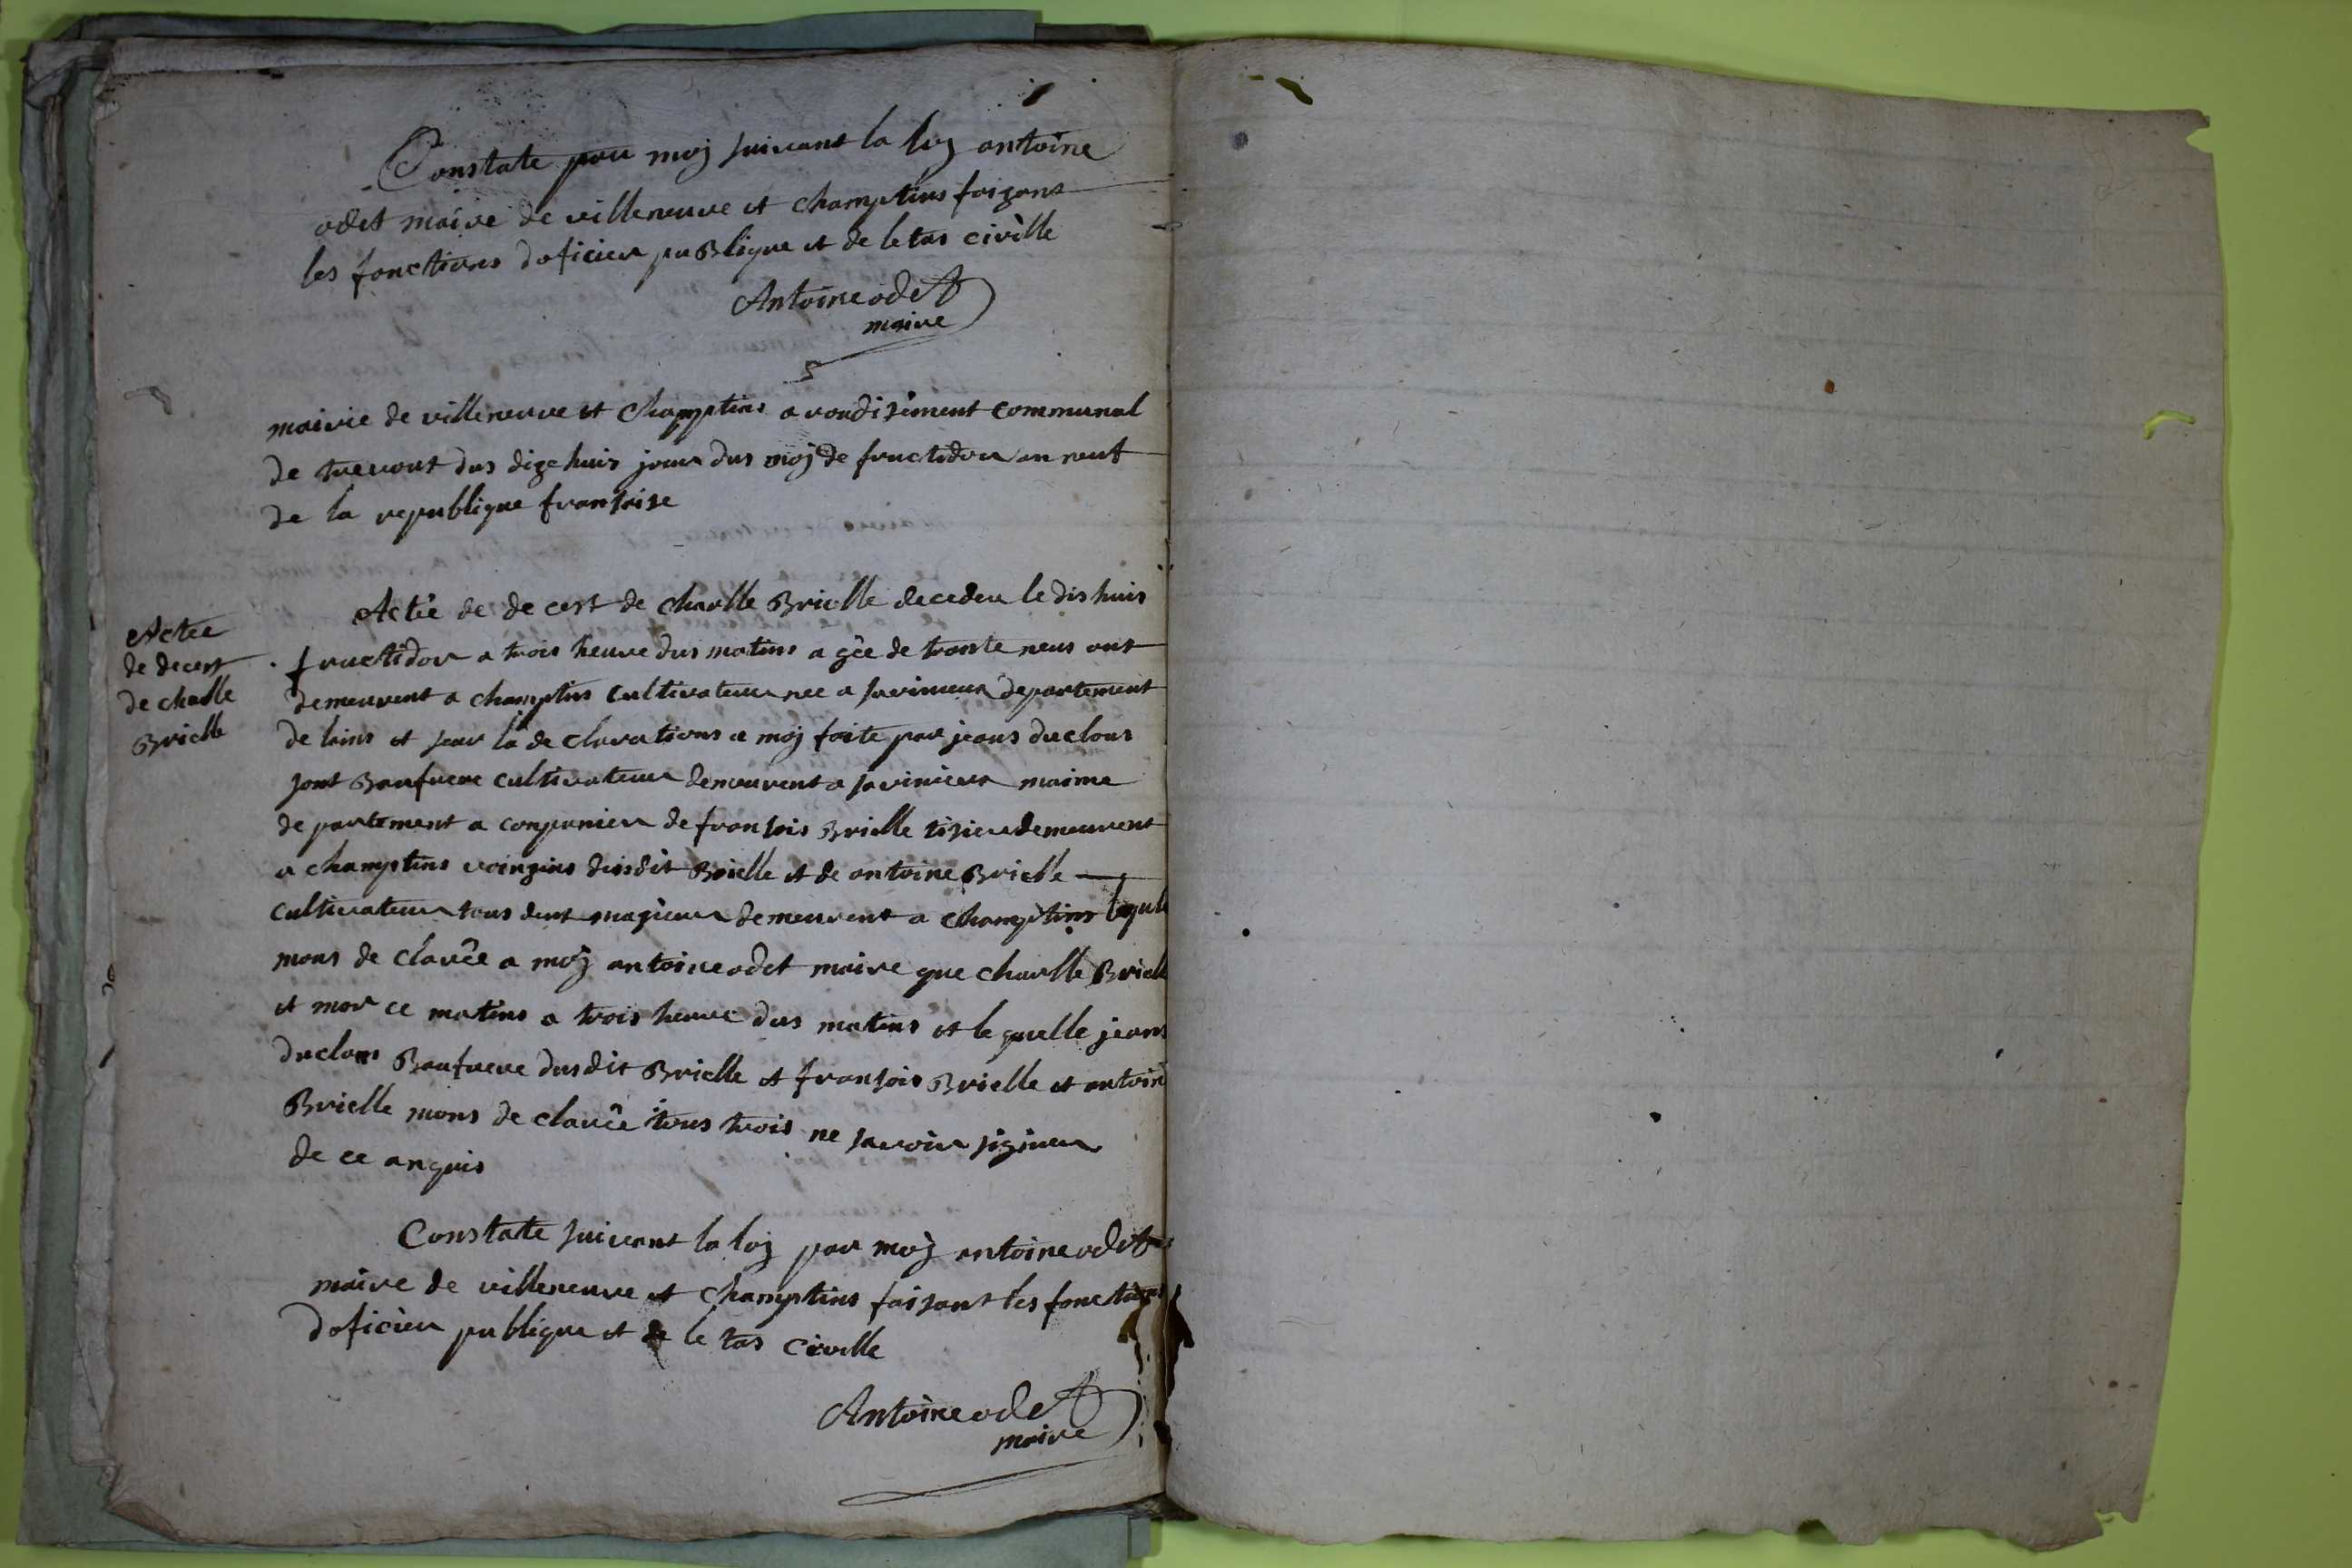 Constate par moj suivant la loj antoine
odet maire de villeneuve et champtins faizant
les fonctions doficier puBlique et de letas civille
Antoine odet
maire
mairie de villeneuve et champtins arondisement communal
de trevout dus dizehuis jour dus moj de fructidor an neuf
de la republique fransoise
Actee
de decest
de challe
Brielle
Actée de de cest de charlle Brielle decedeu le dis huis
fructidor a trois heure dus matins a gée de trante neus ant
demeurent a champtins cultivateur nee a savinieux departement
de lains et sur la de clarations a moj faite par jeans duclous
sont Baufrere cultivateur demeurent a savinieux maime
de partement a conpanier de fransois Brielle tisieu demeurent
a champtins voingins dusdit Brielle et de antoine Brielle
cultivateur tous deut magieur demeurent a champtins lequle
mons de clarée a moj antoine odet maire que charlle Brielle
et mor ce matins a trois heure dus matins et le quelle jeans
duclous Baufrere dusdit Brielle et fransois Brielle et antoine
Brielle mons de clarée tous trois ne savoir signer
de ce anquis
Constate suivant la loj par moj antoine odet
maire de villeneuve et champtins faisant les fonctions
doficier publique et de le tas civille
Antoine odet
maire